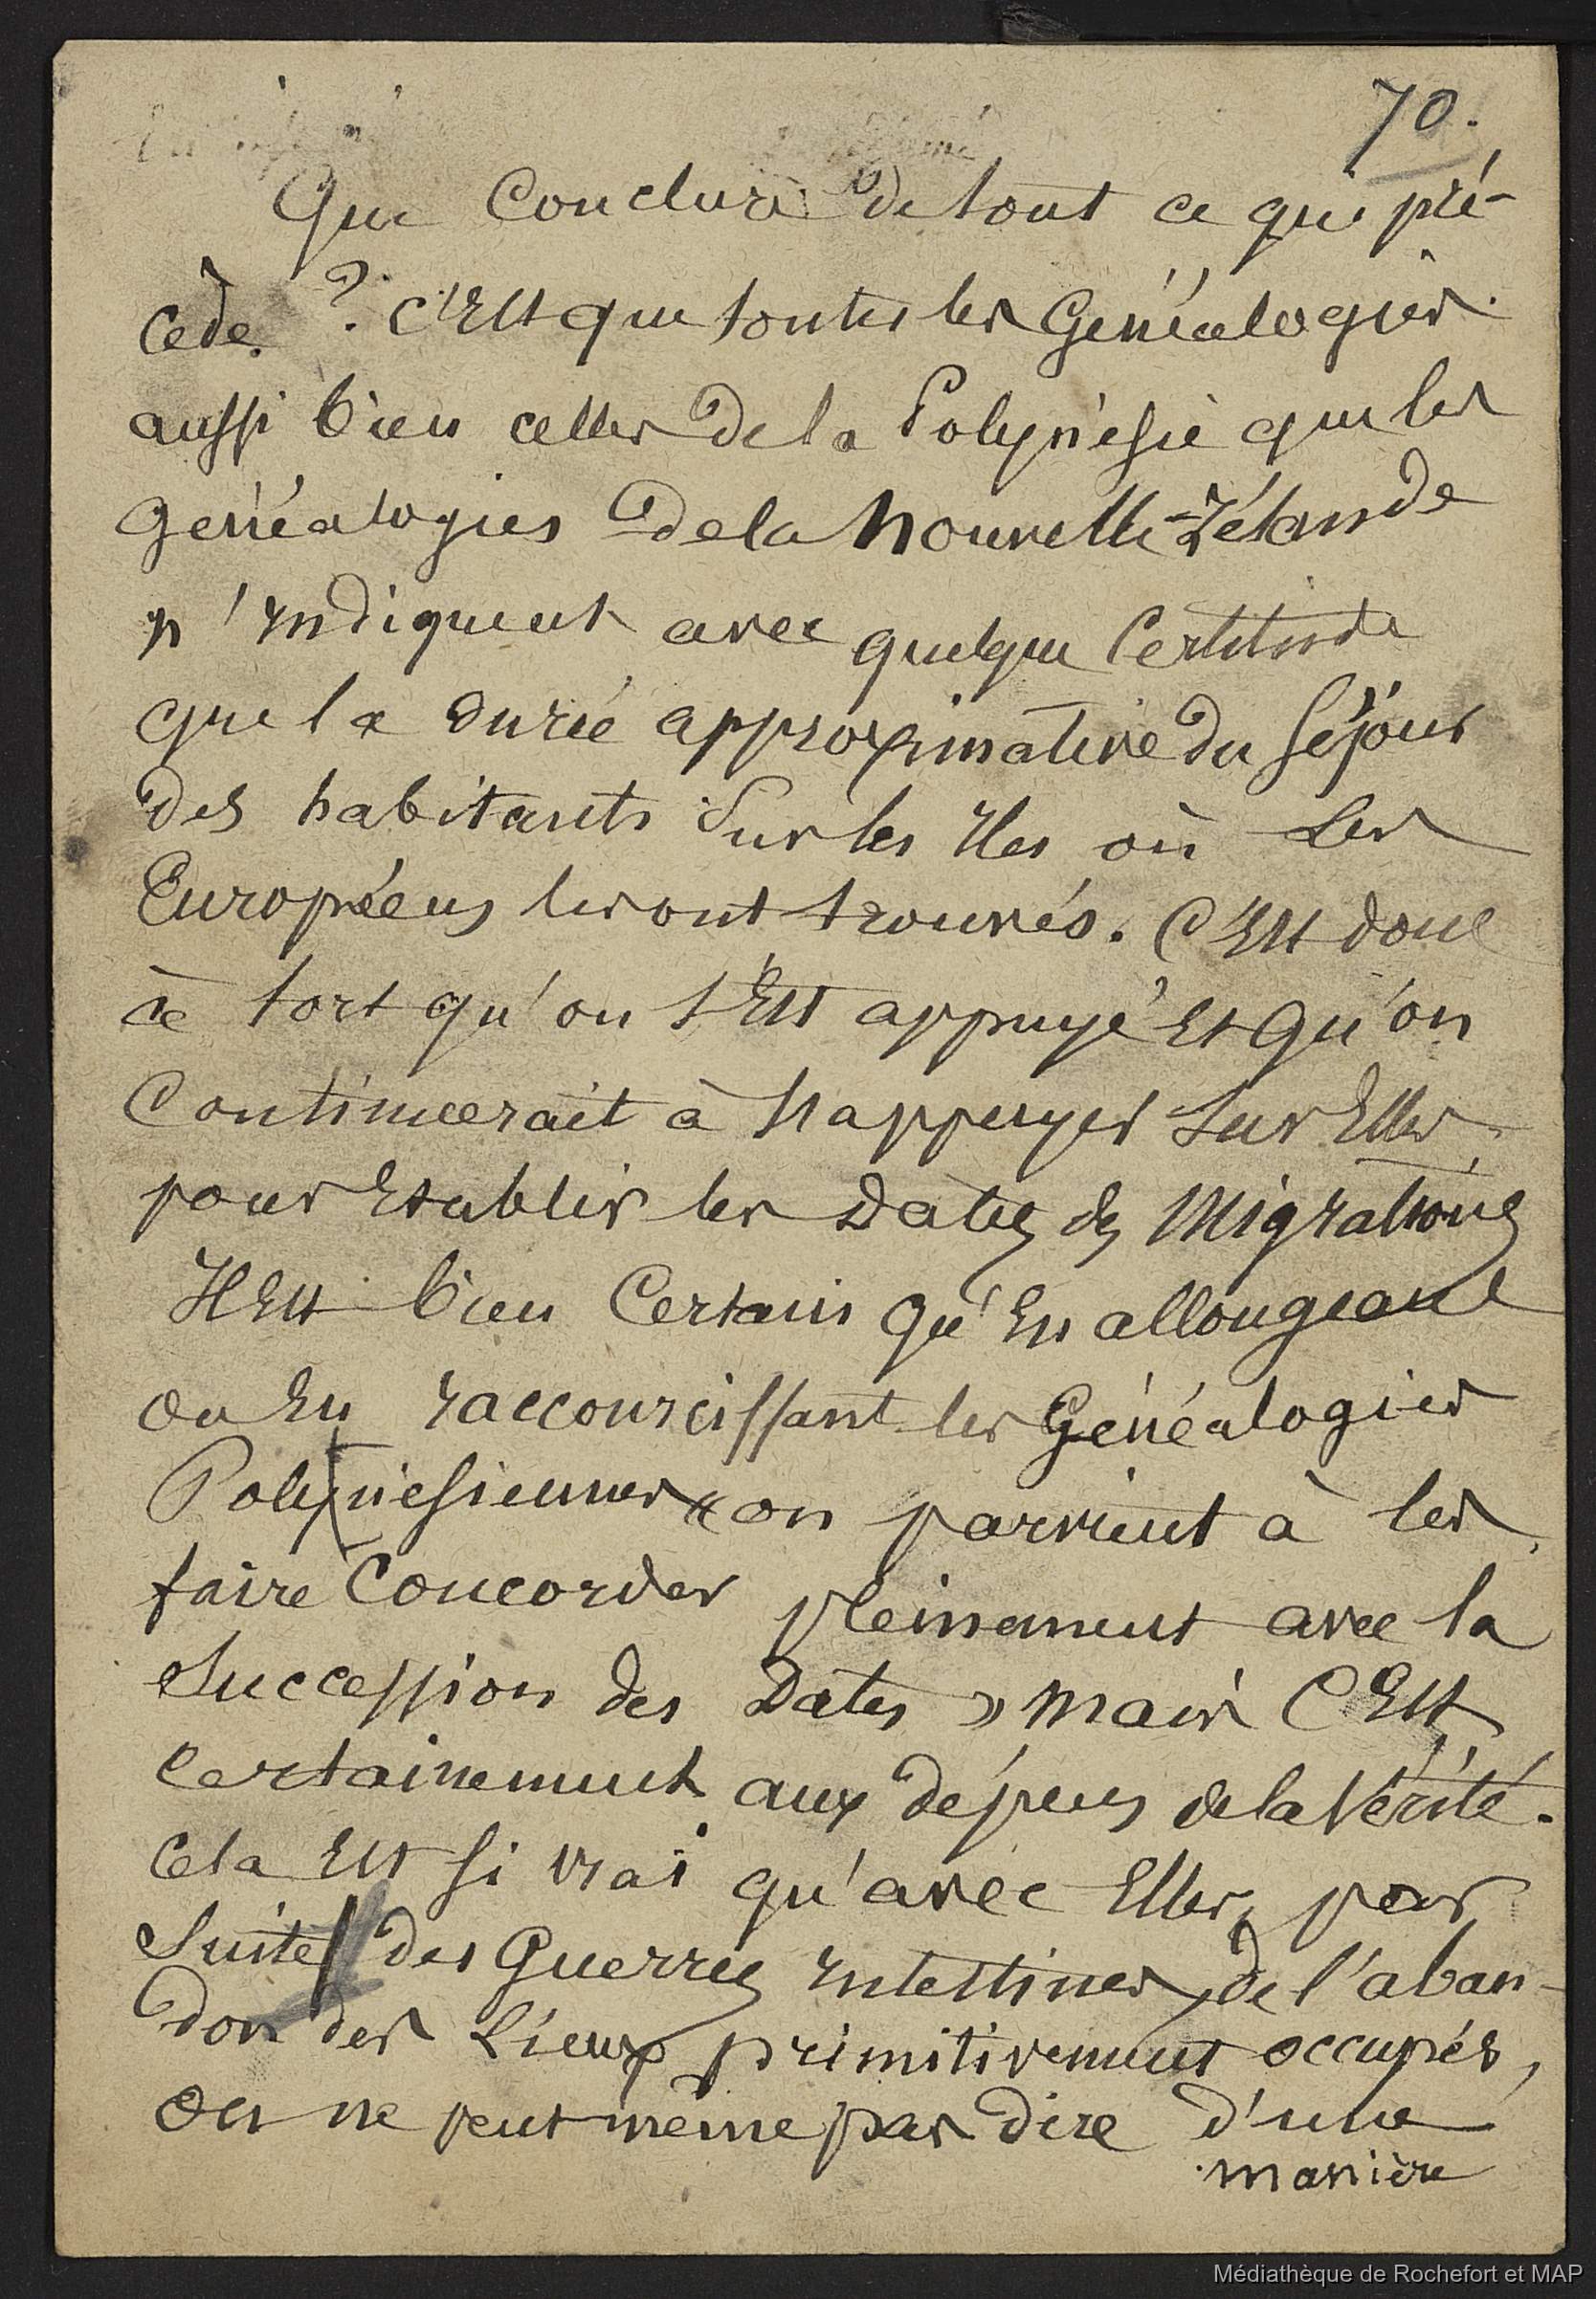 70.
Que Conclure de tout ce qui pré-
cède. ? C'Est que toutes les Généalogies
aussi bien celles de la Polynésie que les
généalogies de la Nouvelle-Zélande
n'indiquent avec quelque Certitude
que la durée approximative du séjour
des habitants sur les Iles où les
Européens les ont trouvés. C'Est donc
à tort qu'on s'Est appuyé Et qu'on
Continuerait à s'appuyer sur Elles
pour Etablir les Dates des Migrations
Il Est bien Certain qu'En allongeant
ou En raccourcissant les Généalogies
Polynésiennes « on parvient à les
faire Concorder pleinement avec la
succession des Dates » mais C'Est
certainement aux dépens de la Vérité.
Cela Est si vrai qu'avec Elles, par
suite des Guerres intestines, de l'aban-
don des Lieux primitivement occupés,
on ne peut même pas dire d'une
manière
Médiathèque de Rochefort et MAP